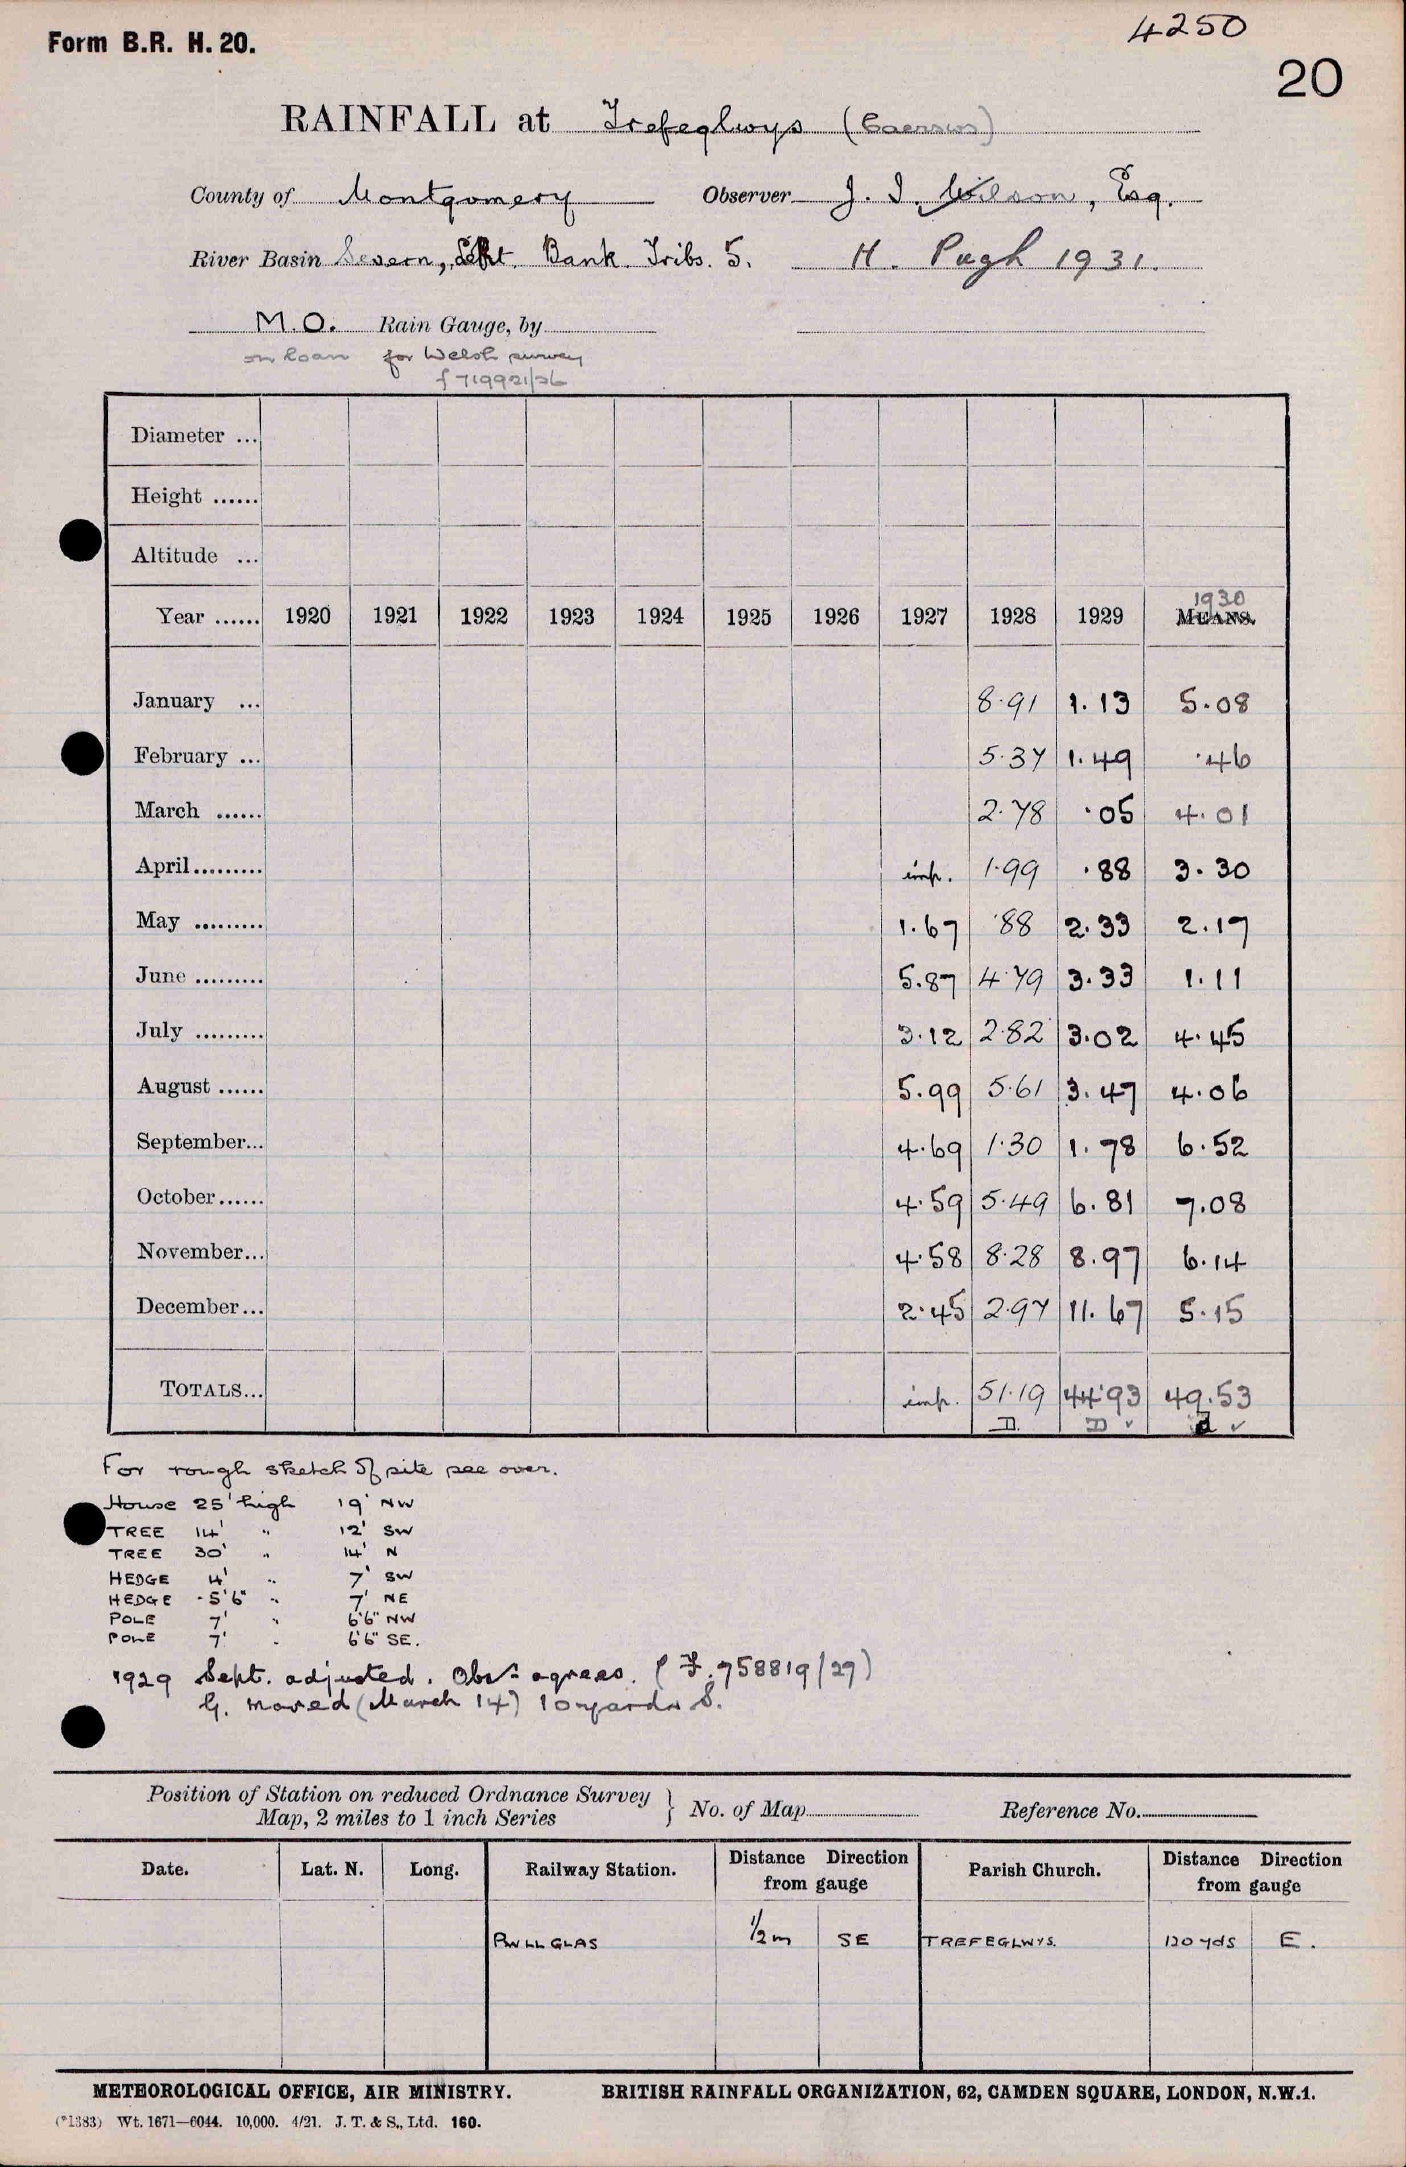 Form B.R. H. 20.
4250
20
RAINFALL at Trefeglwys (Caersws)
County of Montgomery Observer J. I. Wilson, Esq.
River Basin Severn, Left Bank Tribs. 5. H. Pugh 1931.
M.O. Rain Gauge, by
on loan for Welsh survey
f 719921/26
Diameter ...
Height ......
Altitude ...
Year ...... 1920 1921 1922 1923 1924 1925 1926 1927 1928 1929 1930 MEANS.
January ... 8.91 1.13 5.08
February ... 5.37 1.49 .46
March ...... 2.78 .05 4.01
April......... imp. 1.99 .88 3.30
May ......... 1.67 .88 2.33 2.17
June ......... 5.87 4.79 3.33 1.11
July ......... 3.12 2.82 3.02 4.45
August ...... 5.99 5.61 3.47 4.06
September... 4.69 1.30 1.78 6.52
October...... 4.59 5.49 6.81 7.08
November... 4.58 8.28 8.97 6.14
December... 2.45 2.97 11.67 5.15
TOTALS... imp. 51.19 44.93 49.53
D. D ✓ d ✓
For rough sketch of site see over.
House 25' high 19' NW
TREE 14' " 12' SW
TREE 30' " 14' N
HEDGE 4' " 7' SW
HEDGE 5'6" " 7' NE
POLE 7' " 6'6" NW
POLE 7' " 6'6" SE.
1929 Sept. adjusted. Obsr. agrees. (F.758819/29)
G. moved (March 14) 10 yards S.
Position of Station on reduced Ordnance Survey
Map, 2 miles to 1 inch Series } No. of Map Reference No.
Date. Lat. N. Long. Railway Station. Distance Direction from gauge Parish Church. Distance Direction from gauge
PWLLGLAS 1/2 m SE TREFEGLWYS. 120 yds E.
METEOROLOGICAL OFFICE, AIR MINISTRY. BRITISH RAINFALL ORGANIZATION, 62, CAMDEN SQUARE, LONDON, N.W.1.
(*1383) Wt. 1671—6044. 10,000. 4/21. J. T. & S., Ltd. 160.